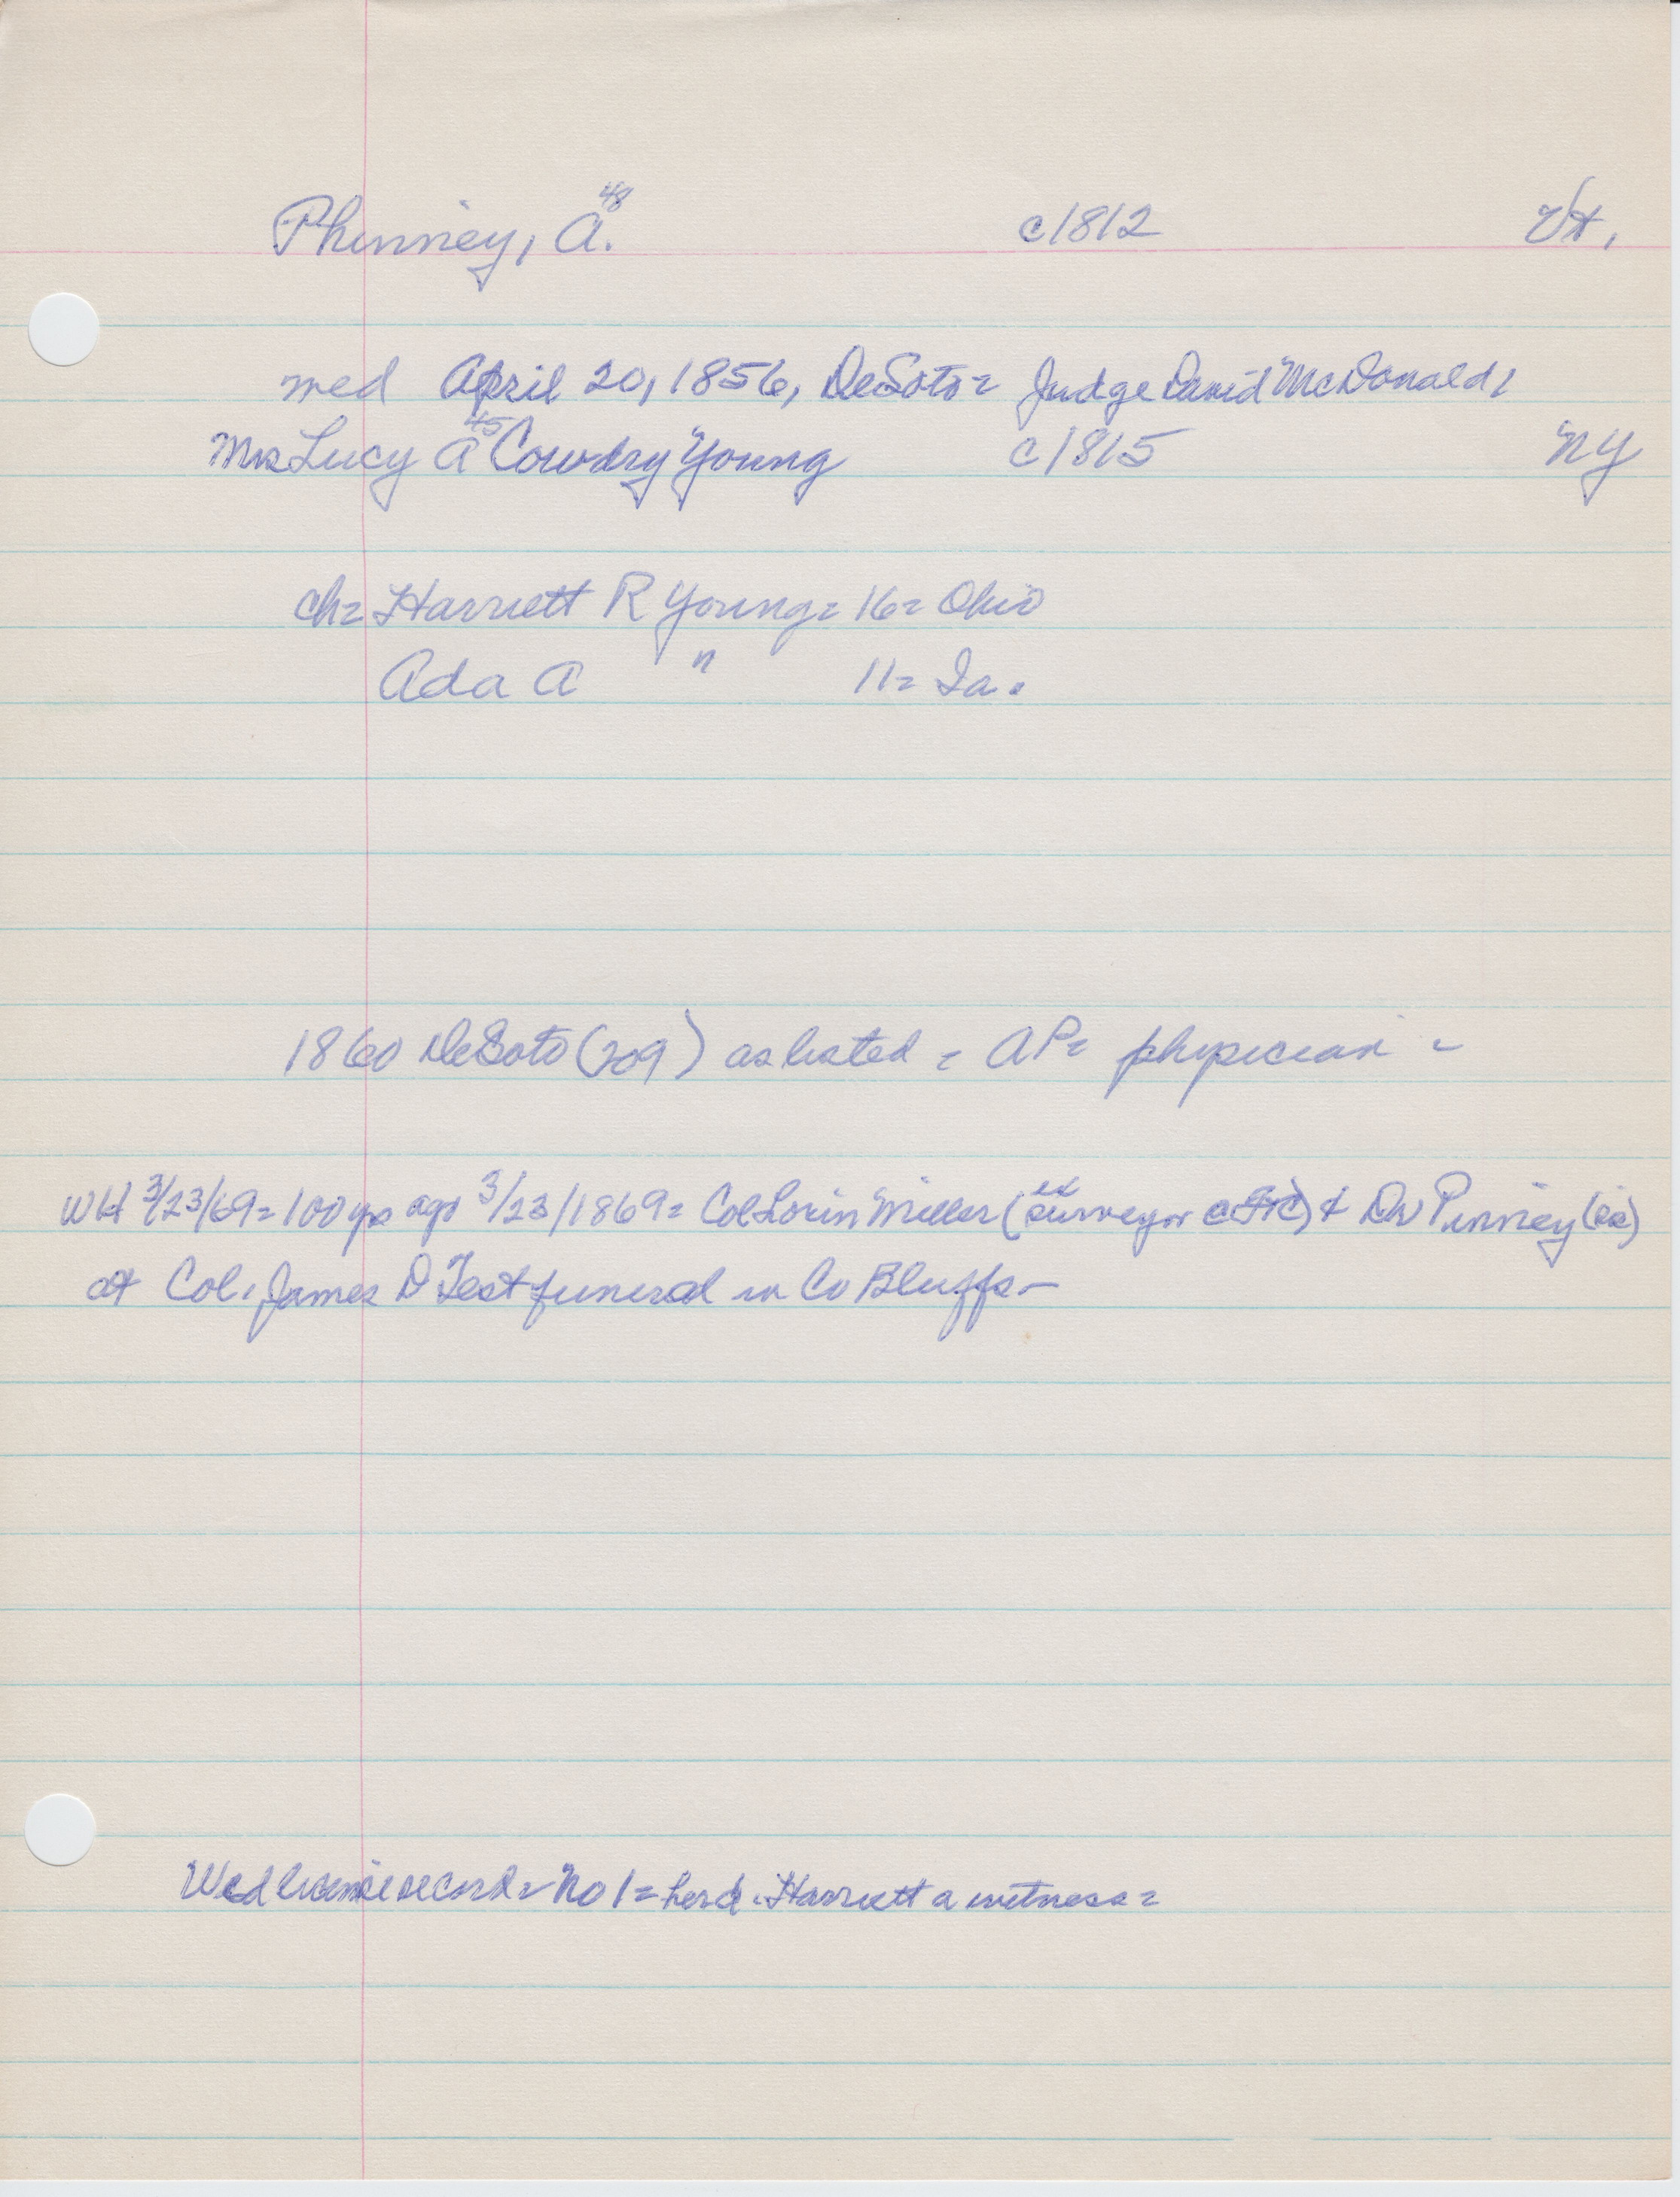 Phinney, A. 48 c1812 Vt.
med April 20, 1856, DeSoto = Judge David McDonald,
Mrs Lucy A 45 Cowdry Young c1815 NY
ch= Harriett R Young= 16= Ohio
Ada A " 11= Ia.
1860 DeSoto (209) as listed = AP= physician -
WH 3/23/69= 100 yrs ago 3/23/1869= Col Lorin Miller (ex surveyor & Dr Pinney
at Col. James D Test funeral in Co Bluffs-
Wed license record = No 1 = her d. Harriett a witness =